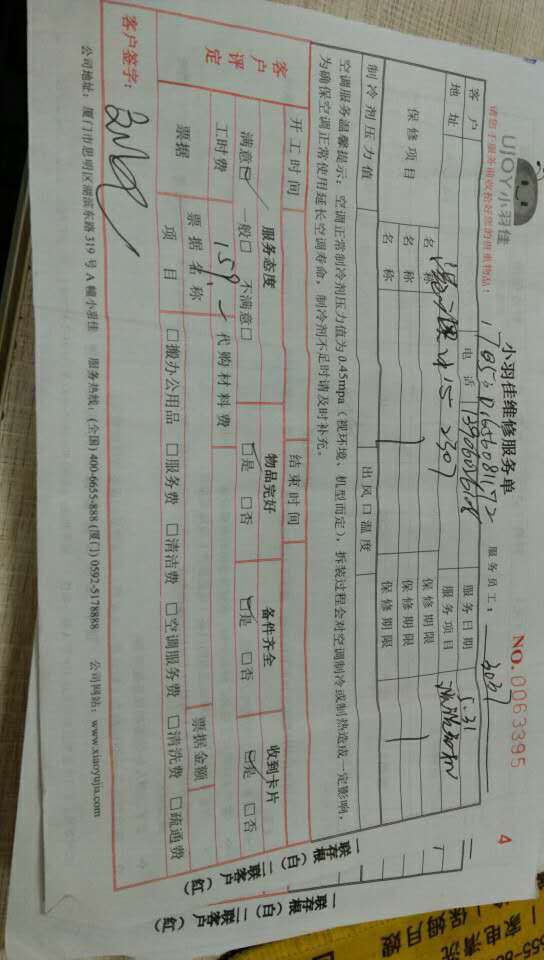 UIOY小羽佳
小羽佳维修服务单
NO.0063395
4
请您于服务前收拾好您的贵重物品！
服务员工：
客户
电话
服务日期 5.31
地址
服务项目
保修项目
名称
保修期限
名称
保修期限
名称
保修期限
制冷剂压力值
出风口温度
空调服务温馨提示：空调正常制冷剂压力值为0.45mpa（视环境、机型而定），拆装过程会对空调制冷或制热造成一定影响，
为确保空调正常使用延长空调寿命，制冷剂不足时请及时补充。
开工时间
结束时间
客户评定
服务态度
物品完好
备件齐全
收到卡片
满意□ 一般□ 不满意□
□是 □否
□是 □否
□是 □否
工时费 159
代购材料费
票据
票据名称
票据金额
项目
□搬办公用品 □服务费 □清洁费 □空调服务费 □清洗费 □疏通费
客户签字：
公司地址：厦门市思明区湖滨东路319号A幢小羽佳 服务热线：(全国) 400-6655-888 (厦门) 0592-5178888 公司网站：www.xiaoyujia.com
一联存根（白）二联客户（红）
一联存根（白）二联客户（红）
家电清洗
保姆月嫂